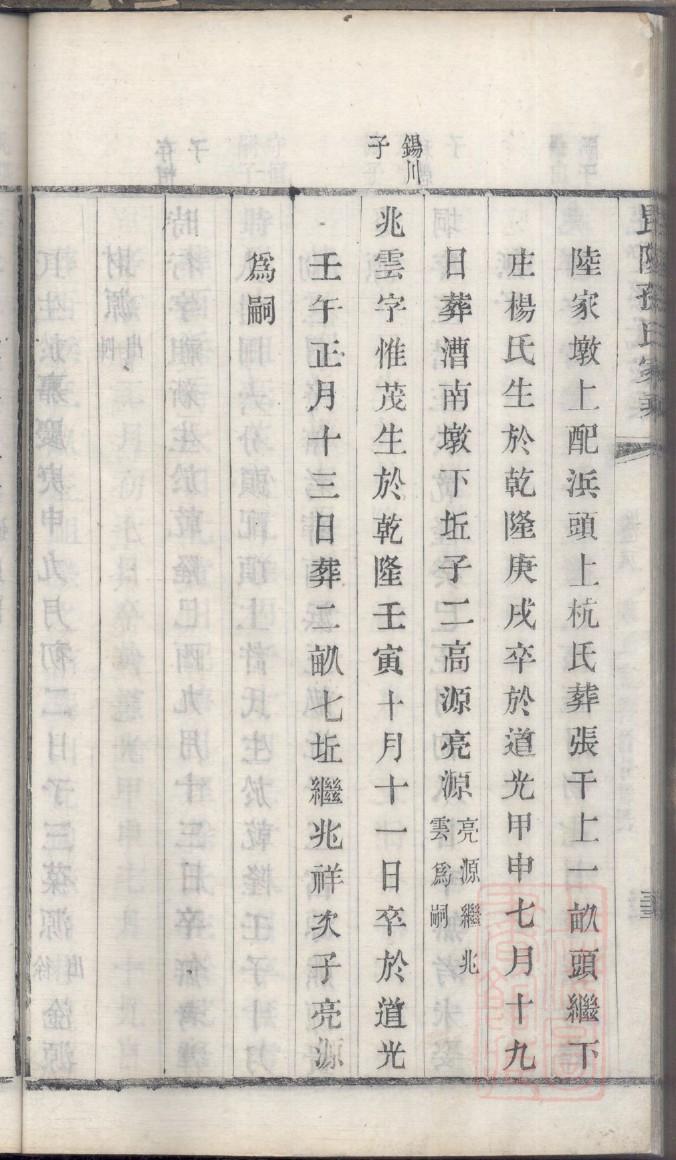 毘陵孫氏家乘
陸家墩上配浜頭上杭氏葬張干上一畝頭繼下
庄楊氏生於乾隆庚戌卒於道光甲申七月十九
日葬漕南墩下坵子二高源亮源亮源繼兆雲爲嗣
錫川子
兆雲字惟茂生於乾隆壬寅十月十一日卒於道光
壬午正月十三日葬二畝七坵繼兆祥次子亮源
爲嗣